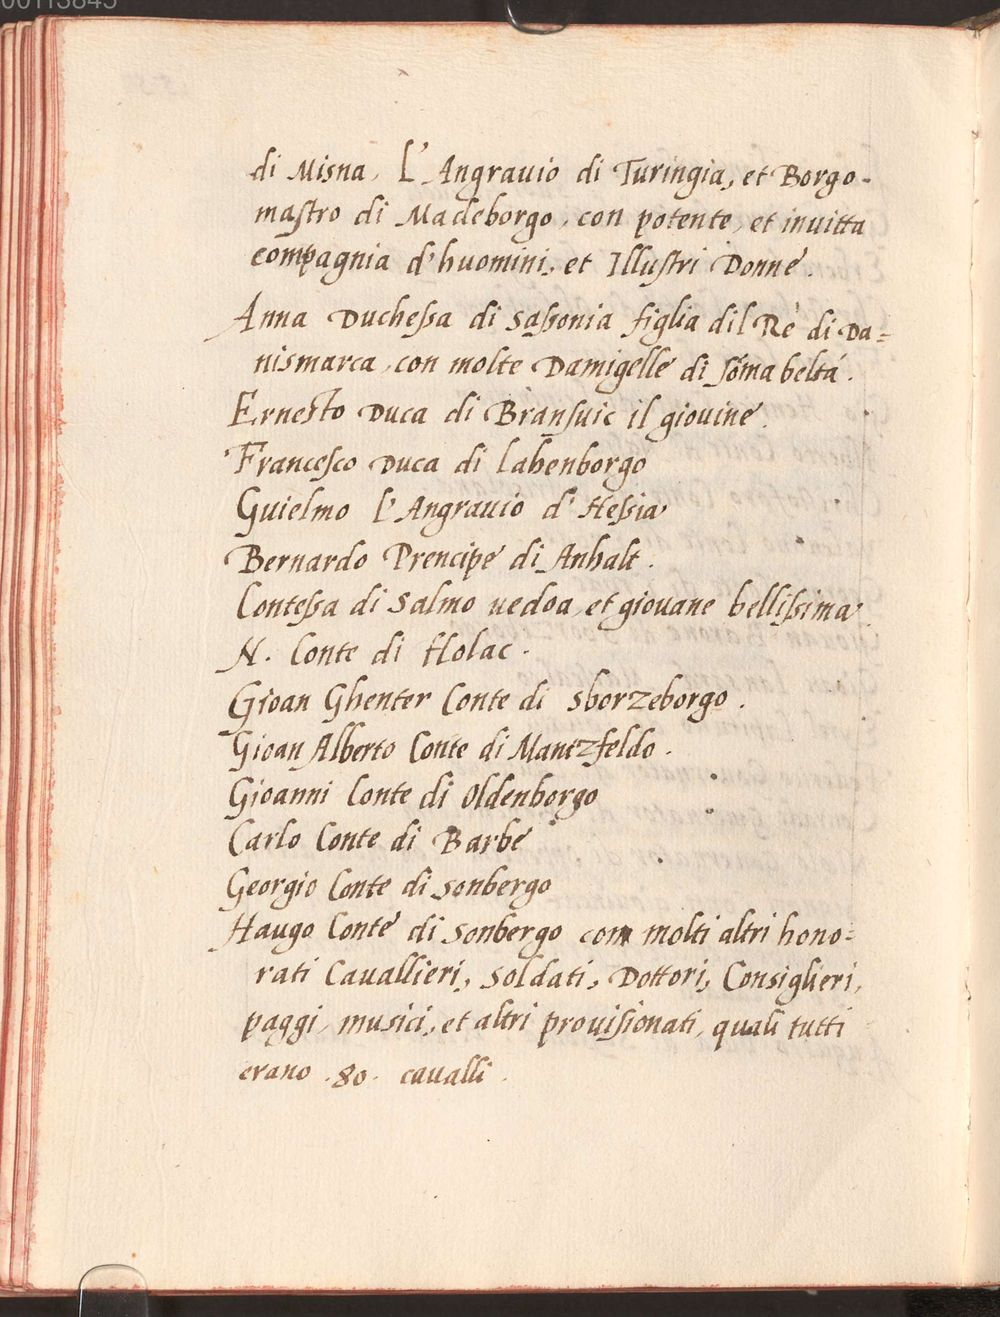 00113845
di Misna, L'Angrauio di Turingia, et Borgo-
mastro di Madeborgo, con potente, et inuitta
compagnia d'huomini, et Illustri Donne.
Anna Duchessa di Sassonia figlia dil Rè di Da=
nismarca, con molte Damigelle di sõma beltá.
Ernesto Duca di Bransuic il giouine.
Francesco Duca di Labenborgo
Guielmo l'Angrauio d'Hessia
Bernardo Prencipe di Anhalt.
Contessa di Salmo uedoa, et giouane bellissima.
N. Conte di Holac.
Gioan Ghenter Conte di Sborzeborgo.
Gioan Alberto Conte di Mantzfeldo.
Gioanni Conte di Oldenborgo
Carlo Conte di Barbe
Georgio Conte di Sonbergo
Haugo Conte di Sonbergo com molti altri hono=
rati Cauallieri, Soldati, Dottori, Consiglieri,
paggi, musici, et altri prouisionati, quali tutti
erano .80. caualli.